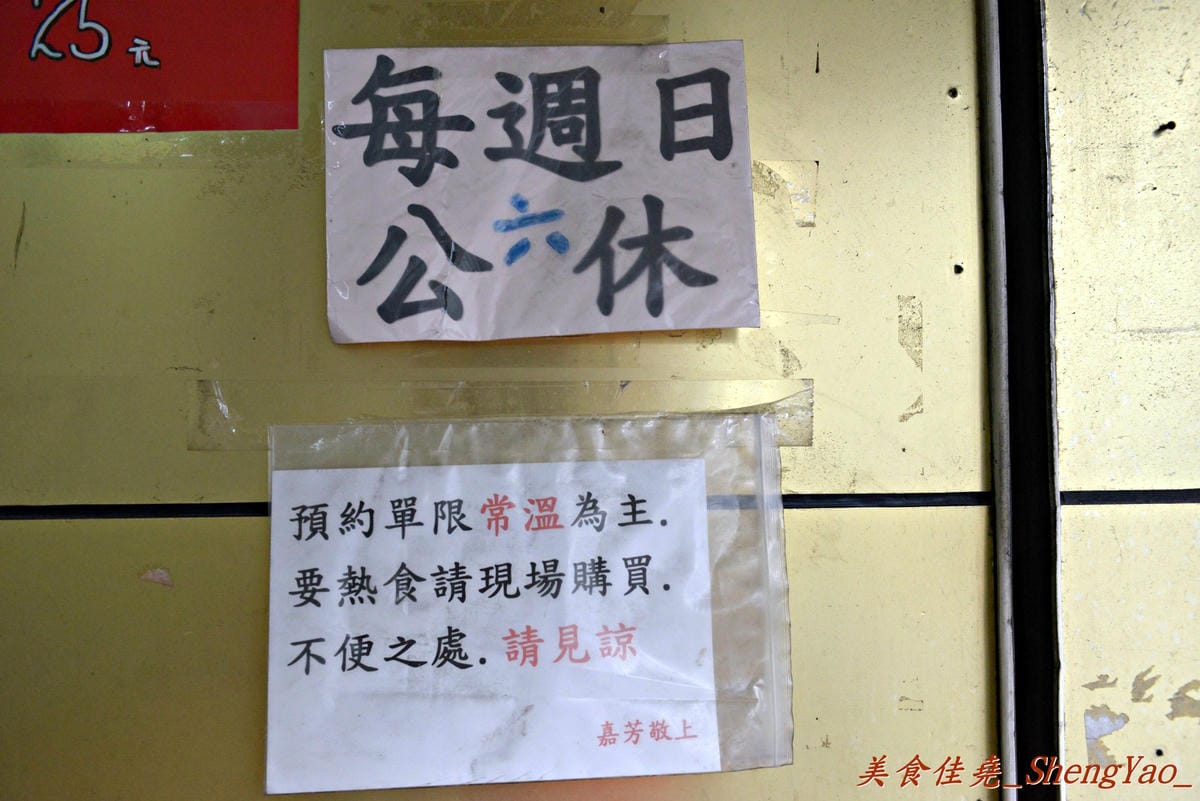 25元
每週日
公六休
預約單限常溫為主.
要熱食請現場購買.
不便之處.請見諒
嘉芳敬上
美食佳堯_ShengYao_